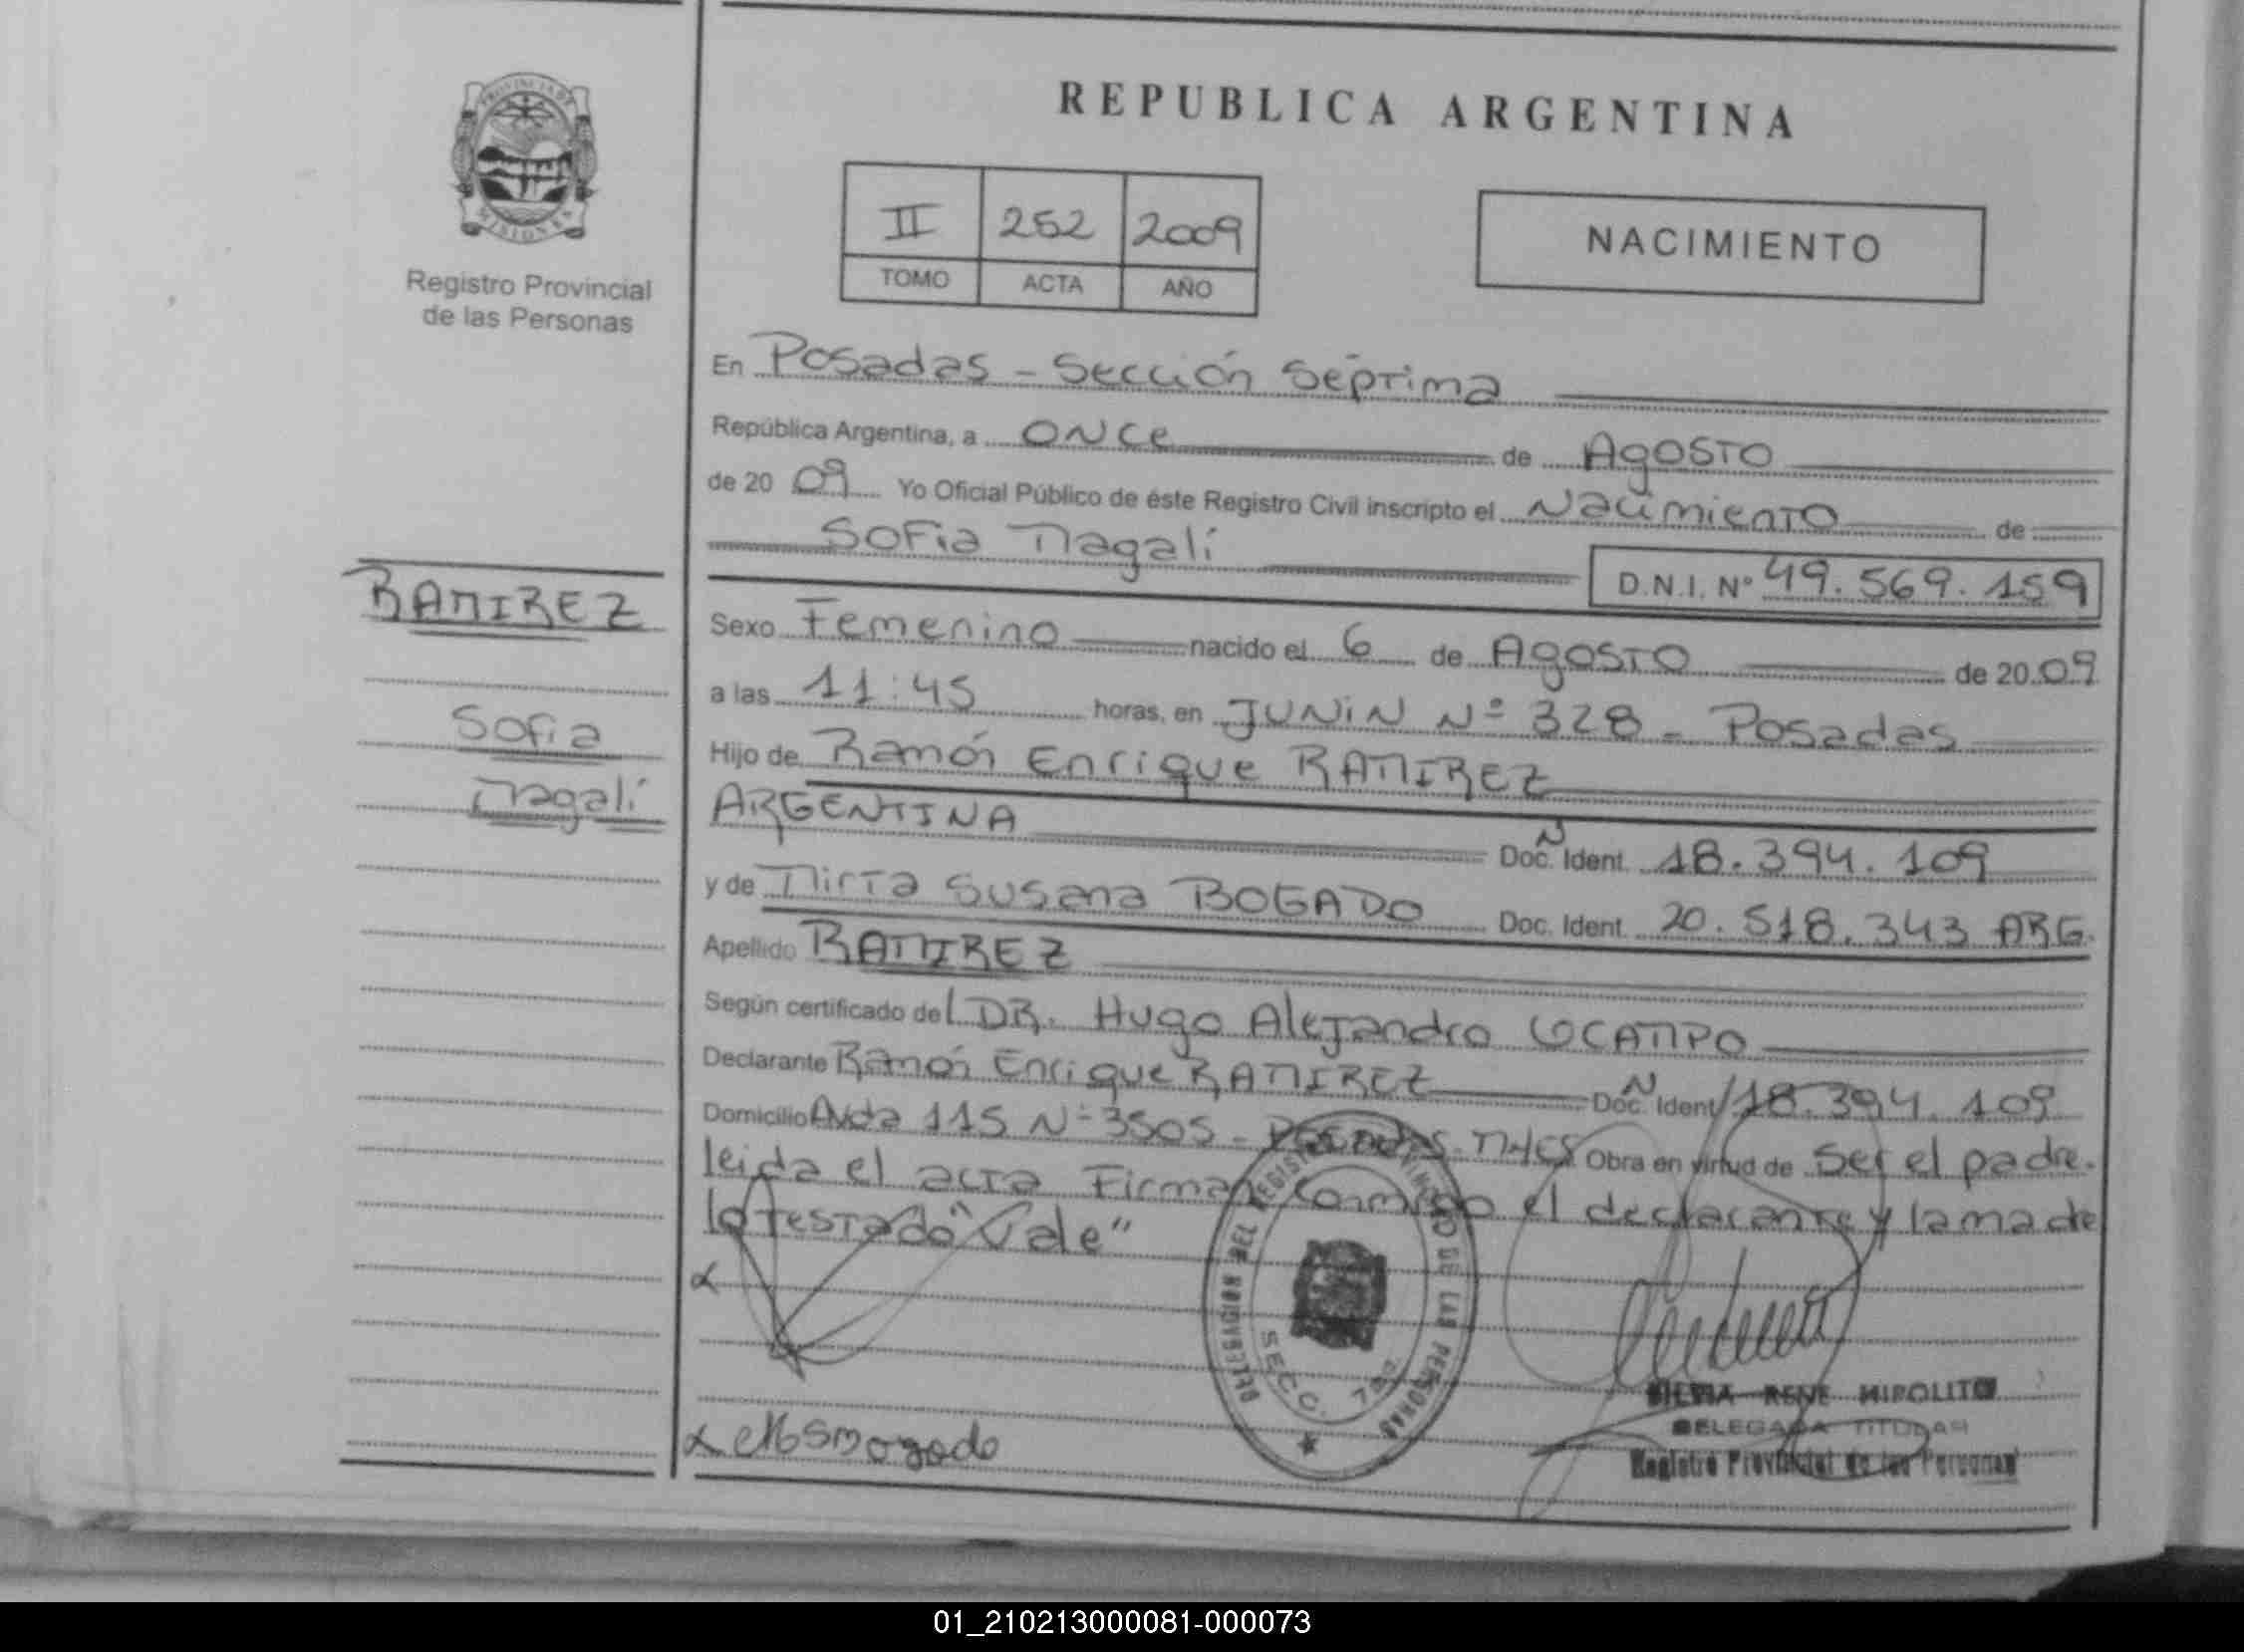 REPUBLICA ARGENTINA
PROVINCIA DE
MISIONES
Registro Provincial
de las Personas
II 252 2009
TOMO ACTA AÑO
NACIMIENTO
En Posadas - Sección Séptima
República Argentina, a ONCE de AgosTo
de 20 09 Yo Oficial Público de éste Registro Civil inscripto el Nacimiento de
Sofia Magalí
D.N.I. Nº 49.569.159
RAMIREZ
Sofia
Magalí
Sexo Femenino nacido el 6 de AgosTo de 20 09
a las 11:45 horas, en JUNiN Nº 328 - Posadas
Hijo de Ramón Enrique RAMIREZ
ARGENTINA Doc. Ident. N 18.394.109
y de MirTa Susana BOGADO Doc. Ident. 20.518.343 ARG.
Apellido RAMIREZ
Según certificado del DR. Hugo Alejandro OCAMPO
Declarante Ramón Enrique RAMIREZ Doc. Ident N 18.394.109
Domicilio Avda 115 Nº 3505 - Posadas - Mnes Obra en virtud de Ser el padre.
leida el acTa Firman Conmigo el declarante y la madre
lo TesTado "Vale"
DELEGACION DEL REGISTRO PROVINCIAL DE LAS PERSONAS
SECC. 7ma
SILVIA RENE HIPOLITO
DELEGADA TITULAR
Registro Provincial de las Personas
01_210213000081-000073